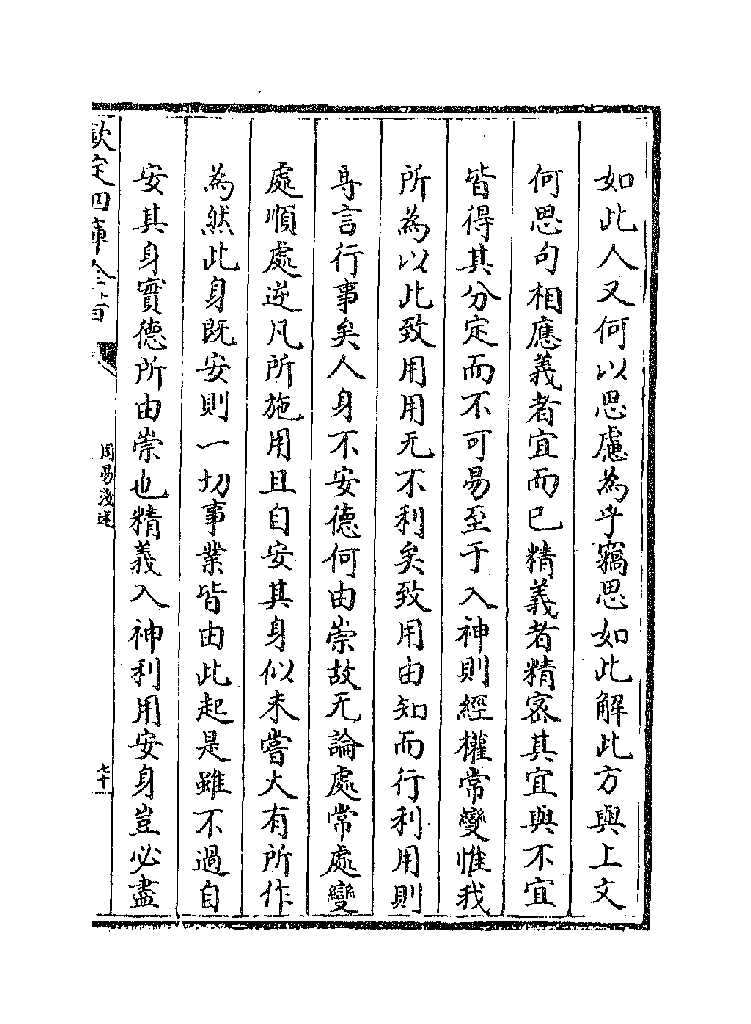 如此人又何以思慮為乎竊思如此解此方與上文
何思句相應義者宜而已精義者精察其宜與不宜
皆得其分定而不可易至于入神則經權常變惟我
所為以此致用用无不利矣致用由知而行利用則
專言行事矣人身不安德何由崇故无論處常處變
處順處逆凡所施用且自安其身似未嘗大有所作
為然此身既安則一切事業皆由此起是雖不過自
安其身實德所由崇也精義入神利用安身豈必盡
欽定四庫全書
周易淺述
七十